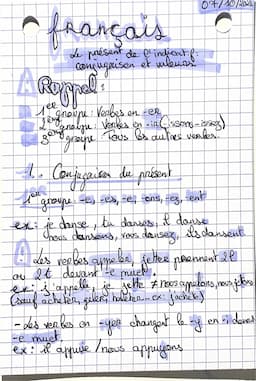 07/10/202
français
Le présent de l'indicatif :
conjugaison et valeurs
Rappel :
1er groupe : Verbes en -er
2ème groupe : Verbes en -ir (-issons -issez)
3ème groupe : Tous les autres verbes.
1. Conjugaison du présent
1er groupe -e, -es, -e, -ons, -ez, -ent
ex : je danse, tu danses, il danse
nous dansons, vous dansez, ils dansent
Les verbes appeler, jeter prennent 2 l
ou 2 t devant -e muet.
ex : j'appelle, je jette ≠ nous appelons, nous jetons
(sauf acheter, geler, haleter... ex : j'achète)
- Les verbes en -yer changent le -y en -i devant
-e muet.
ex : il appuie / nous appuyons